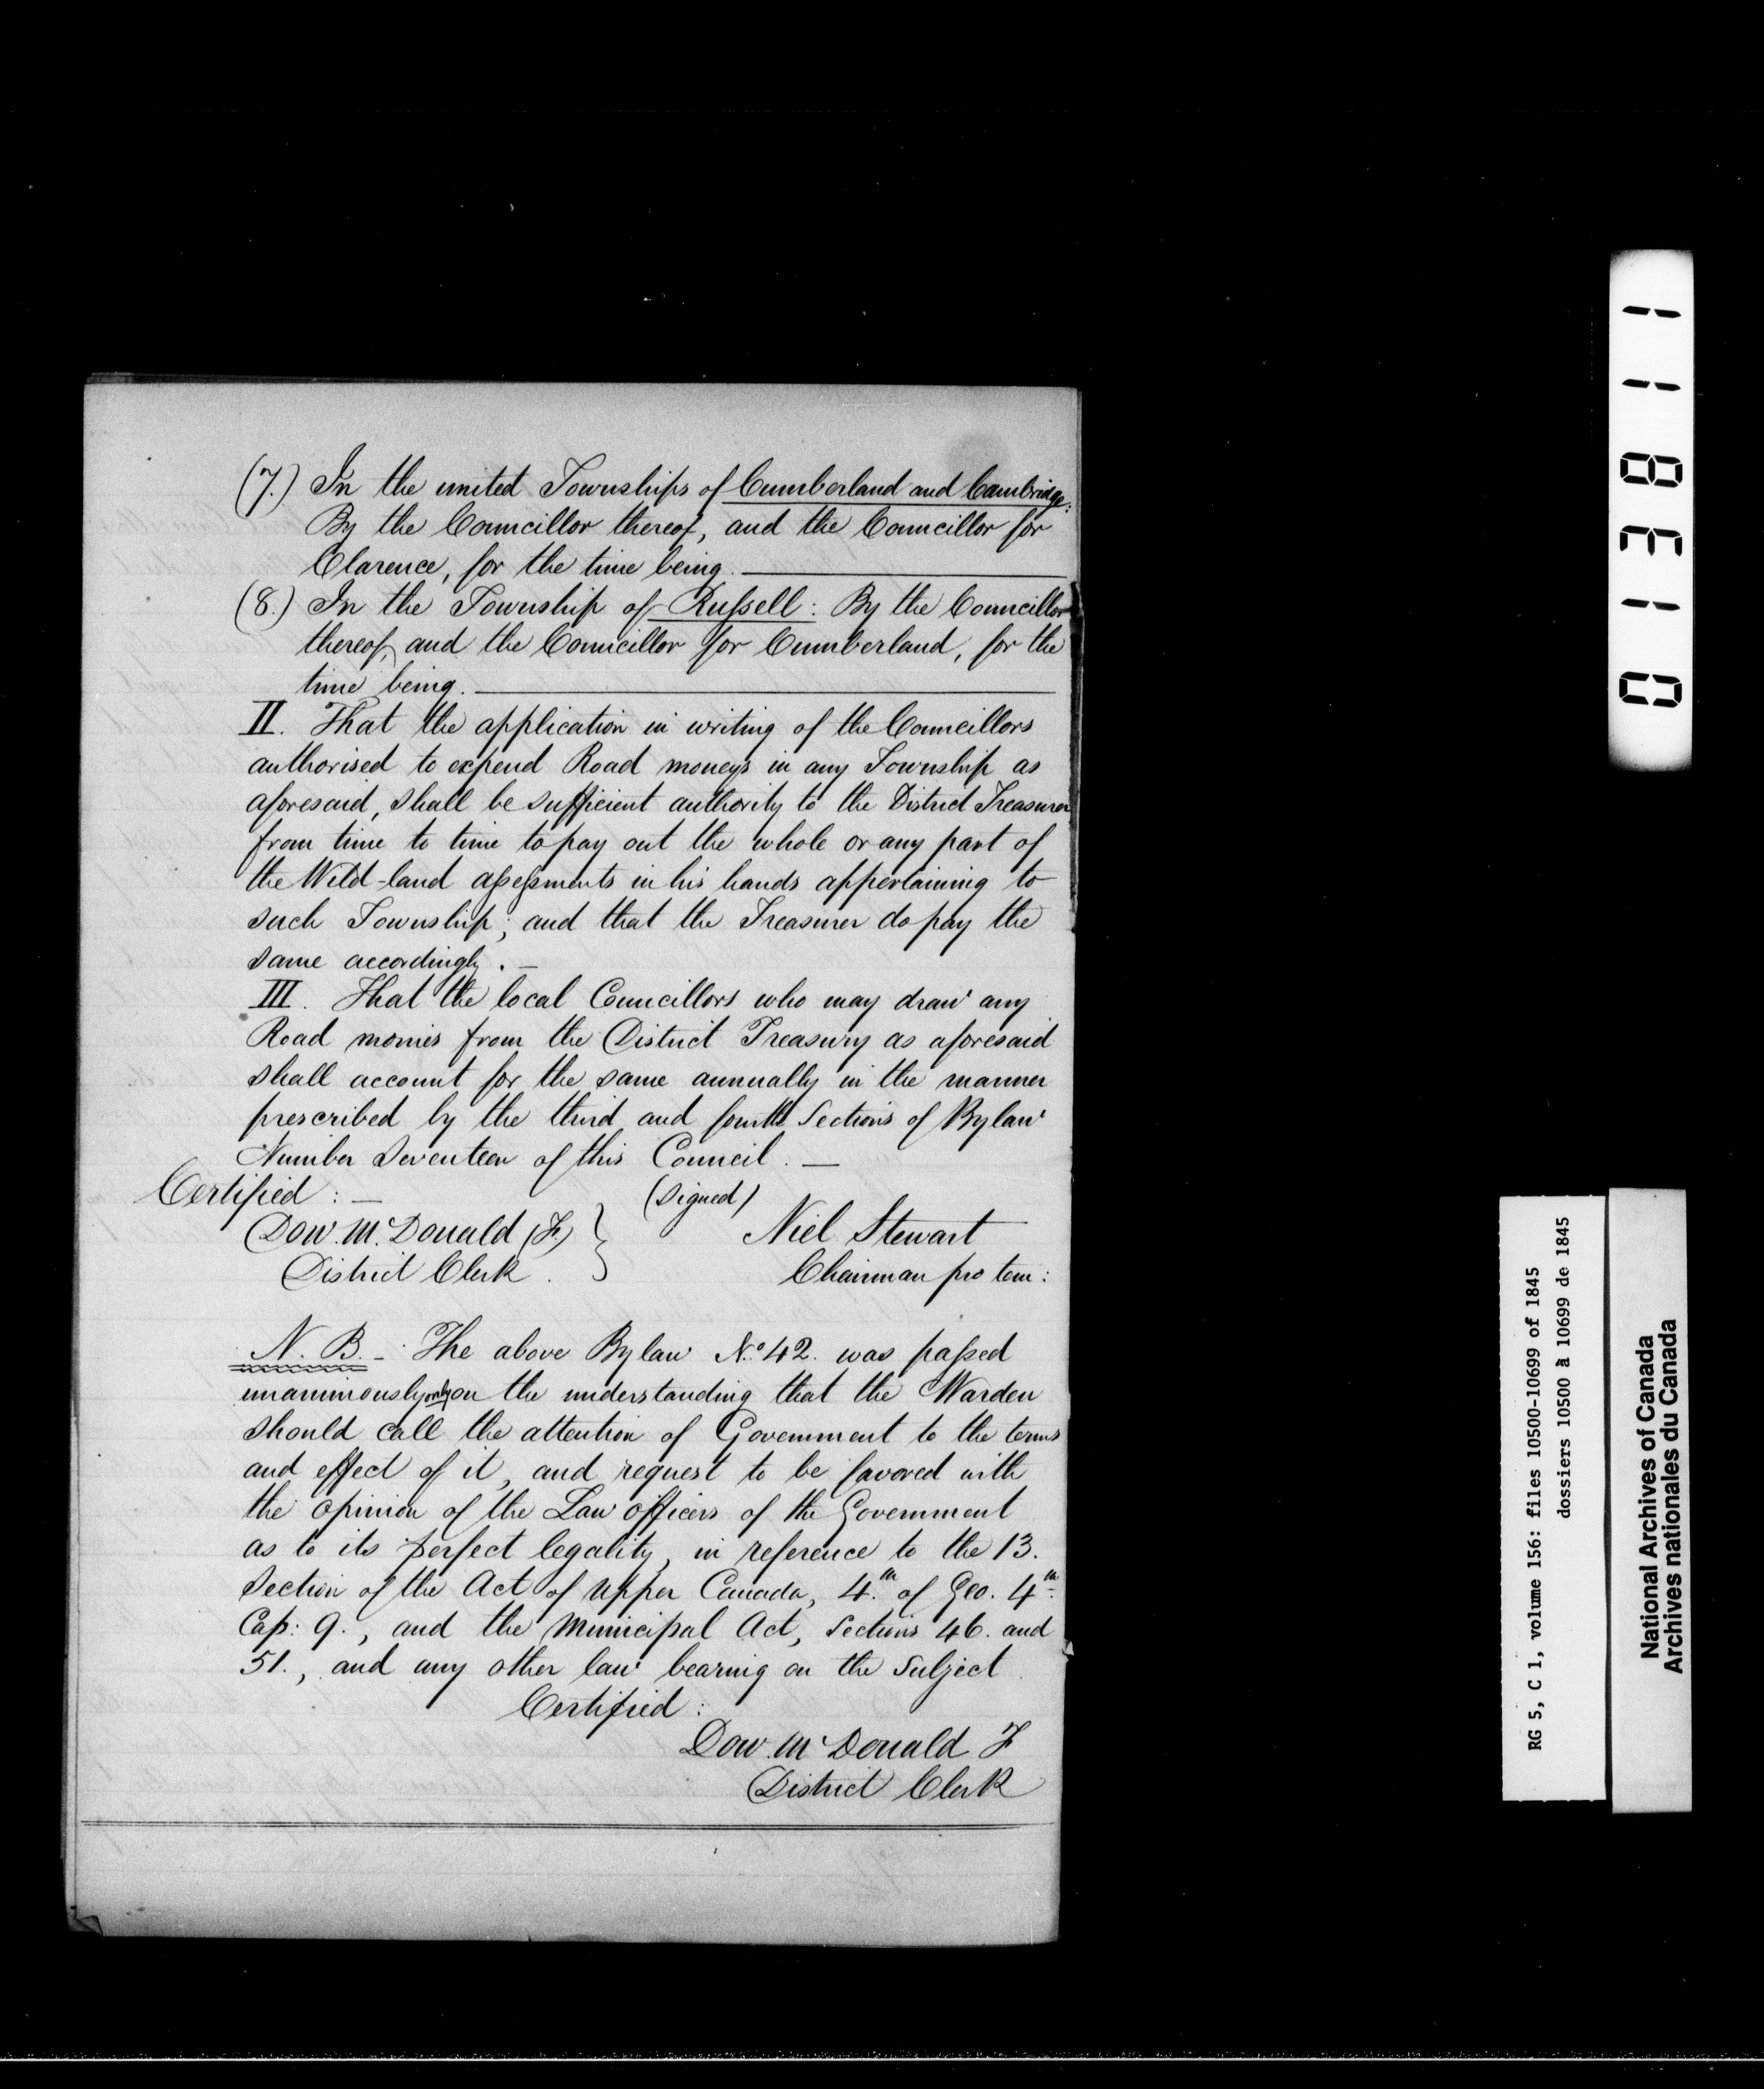 (7.) In the united Townships of Cumberland and Cambridge:
By the Councillor thereof, and the Councillor for
Clarence, for the time being.
(8.) In the Township of Russell: By the Councillor
thereof, and the Councillor for Cumberland, for the
time being.
II. That the application in writing of the Councillors
authorised to expend Road moneys in any Township as
aforesaid, shall be sufficient authority to the District Treasurer
from time to time to pay out the whole or any part of
the Wild-land assessments in his hands appertaining to
such Township; and that the Treasurer do pay the
same accordingly. —
III. That the local Councillors who may draw any
Road monies from the District Treasury as aforesaid
shall account for the same annually in the manner
prescribed by the third and fourth Sections of Bylaw
Number Seventeen of this Council. —
Certified: — (signed)
Dow. McDonald (F.) } Niel Stewart
District Clerk. Chairman pro tem:
N. B. - The above Bylaw No. 42. was passed
unanimously only on the understanding that the Warden
should call the attention of Government to the terms
and effect of it, and request to be favored with
the opinion of the Law officers of the Government
as to its perfect legality, in reference to the 13.
Section of the Act of Upper Canada, 4.th of Geo. 4th.
Cap: 9., and the Municipal Act, Sections 46. and
51., and any other law bearing on the subject.
Certified:
Dow. McDonald F
District Clerk
013811
RG 5, C 1, volume 156: files 10500-10699 of 1845
dossiers 10500 à 10699 de 1845
National Archives of Canada
Archives nationales du Canada